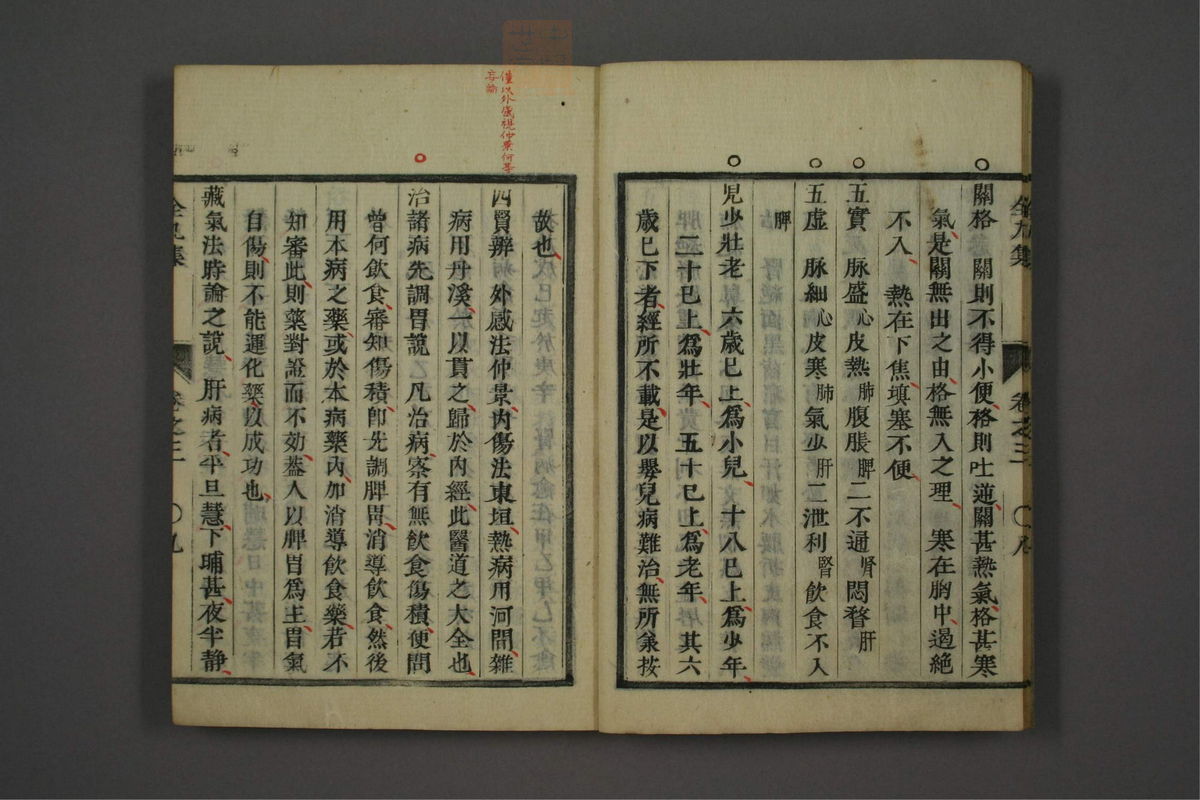 關格 關則不得小便格則吐逆關甚熱氣格甚寒
氣是關無出之由格無入之理 寒在胸中遏絶
不入 熱在下焦塡塞不便
五實 脉盛心皮熱肺腹脹脾二不通腎悶瞀肝
五虛 脉細心皮寒肺氣少肝二泄利腎飲食不入
脾
兒少壯老 六歲已上爲小兒 十八已上爲少年
二十已上爲壯年 五十已上爲老年 其六
歲已下者經所不載是以嬰兒病難治無所兼按
全九集 卷之三 〇九
故也
四賢辨 外感法仲景內傷法東垣熱病用河間雜
病用丹溪一以貫之歸於內經此醫道之大全也
治諸病先調胃說 凡治病察有無飲食傷積便問
曾何飲食審知傷積卽先調脾胃消導飲食然後
用本病之藥或於本病藥內加消導飲食藥若不
知審此則藥對證而不効蓋人以脾胃爲主胃氣
自傷則不能運化藥以成功也
藏氣法時論之說 肝病者平旦慧下晡甚夜半靜
全九集 卷之三 〇九
僅以外感視仲景何等
妄論